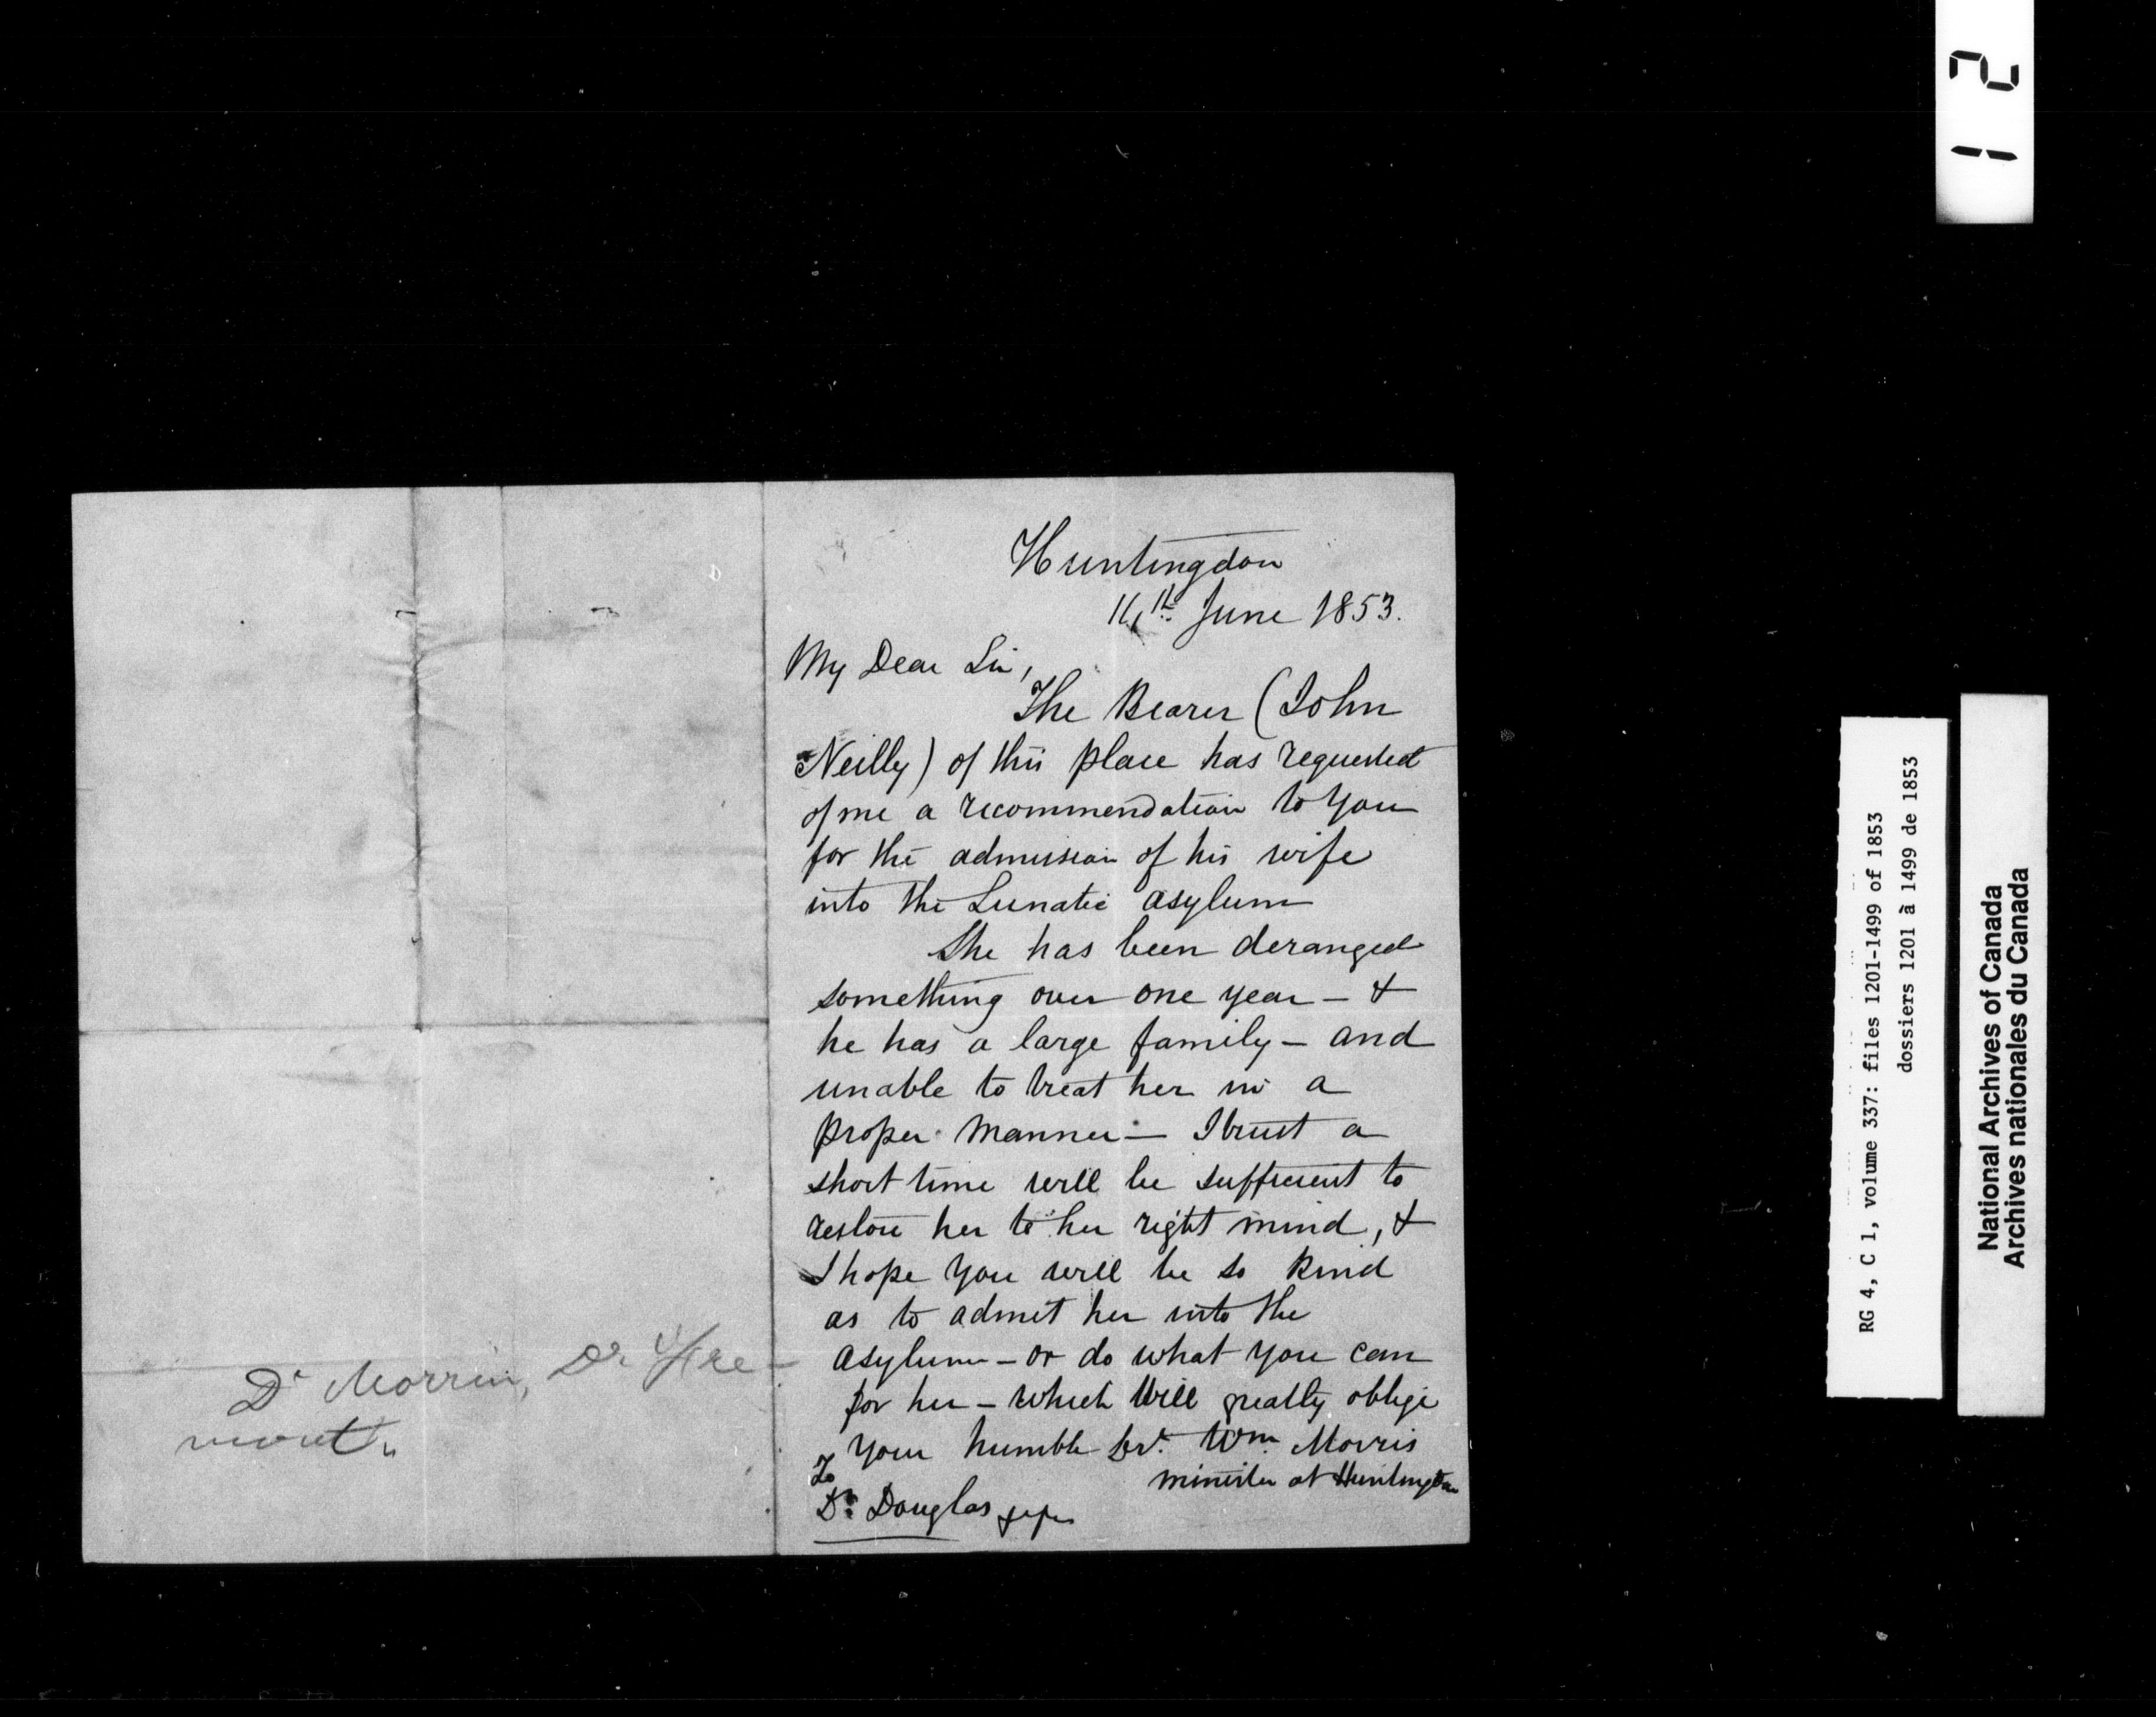 12
Huntingdon
16th June 1853.
My Dear Sir,
The Bearer (John
Neilly) of this place has requested
of me a recommendation to you
for the admission of his wife
into the Lunatic asylum
She has been deranged
something over one year - &
he has a large family - and
unable to treat her in a
proper manner - I trust a
short time will be sufficient to
restore her to her right mind, &
I hope you will be so kind
as to admit her into the
asylum - or do what you can
for her - which will greatly oblige
Your humble Sert. Wm. Morris
minister at Huntingdon
To
Dr. Douglas
Dr Morrin, Dr
RG 4, C 1, volume 337: files 1201-1499 of 1853
dossiers 1201 à 1499 de 1853
National Archives of Canada
Archives nationales du Canada